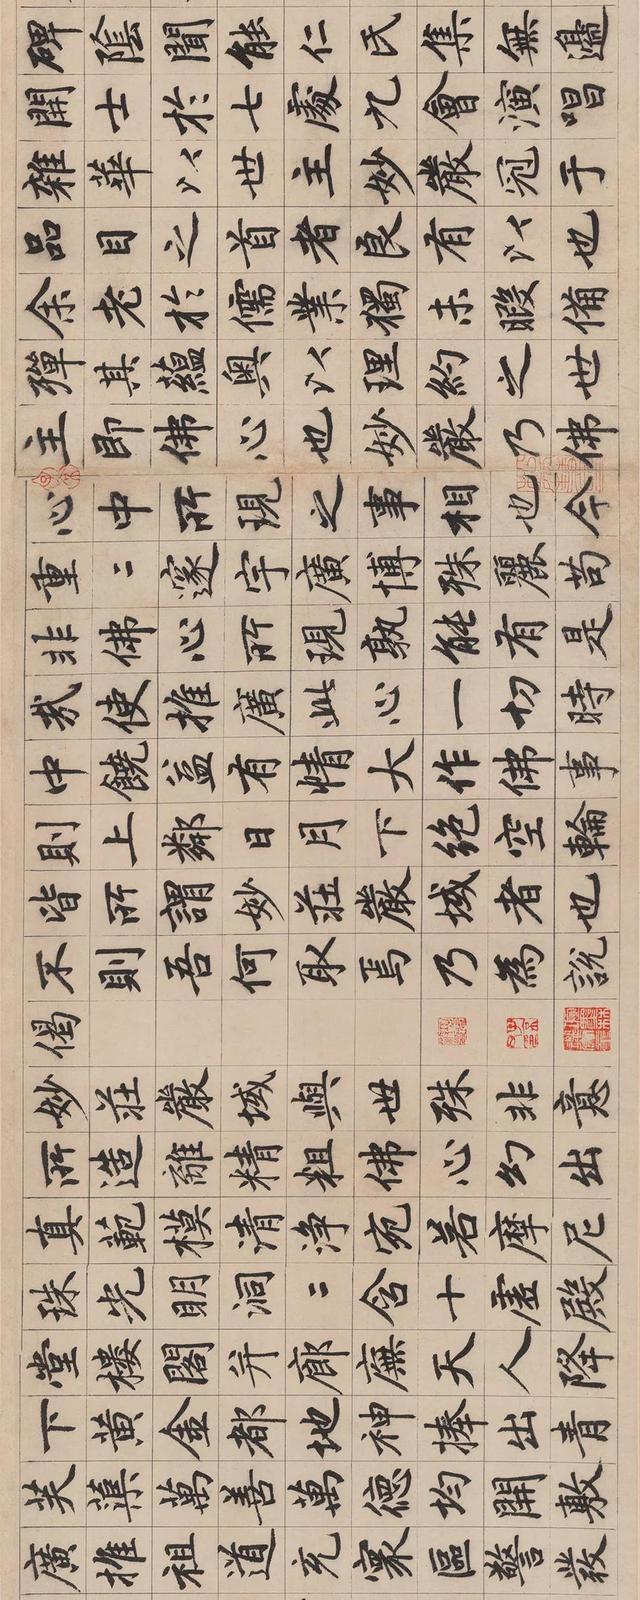 碑陰聞能仁氏集無邊
開士於七處九會演唱
雜華以世主妙嚴冠于
品目之首者良有以也
余老於儒業獨未暇備
殫其蘊奧以理約之世
主即佛心也妙嚴乃佛
心中所現之事相也今
重〻邃宇廣博殊麗苟
非佛心所現孰能有是
哉使推廣此心一切時
中饒益有情大作佛事
則上鄰日月下絶空輪
皆所謂妙莊嚴域者也
不則吾何取焉乃為說
偈
妙莊嚴域與世殊非意
所造離精粗佛心幻出
真範模清淨宛若摩尼
珠光明洞〻含十虛殿
堂樓閣并廊廡天人降
下黄金都地神捧出青
芙蕖萬善萬德均開敷
廣推祖道充寰區警發